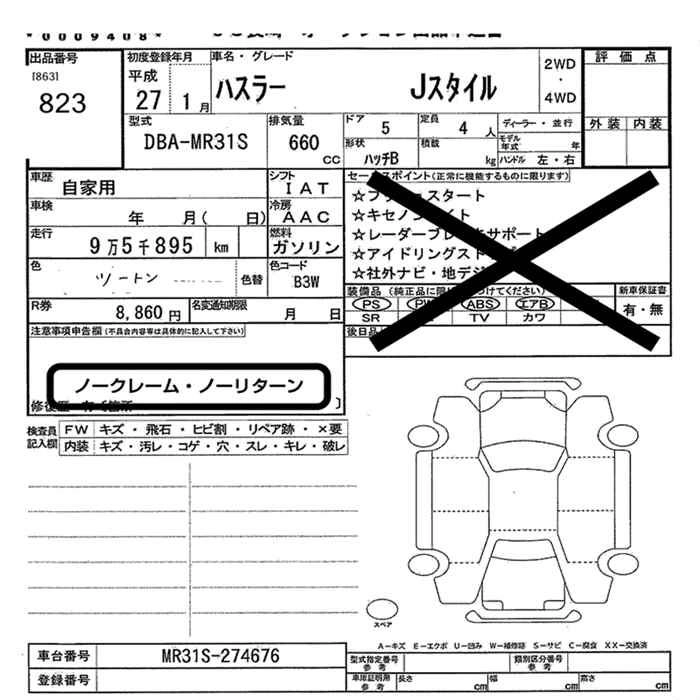 *0009408*
出品番号
[863]
823
初度登録年月
平成
27 1 月
車名・グレード
ハスラー Jスタイル
2WD
・
4WD
評価点
外装 内装
型式
DBA-MR31S
排気量
660
CC
ドア 5
定員 4 人
ディーラー・並行
形状
ハッチB
積載 kg
モデル年式 年
ハンドル 左・右
車歴
自家用
シフト
IAT
車検
年 月( 日)
冷房
AAC
走行
9万5千895 km
燃料
ガソリン
色
ツートン
色替
色コード
B3W
R券
8,860 円
名変通知期限
月 日
セールスポイント(正常に機能するものに限ります)
☆プッシュスタート
☆キセノンライト
☆レーダーブレーキサポート
☆アイドリングストップ
☆社外ナビ・地デジ
装備品
PS PW ABS エアB
SR TV カワ
新車保証書
有・無
後日品
注意事項申告欄(不具合内容等は具体的に記入して下さい)
ノークレーム・ノーリターン
検査員
記入欄
FW キズ・飛石・ヒビ割・リペア跡・×要
内装 キズ・汚レ・コゲ・穴・スレ・キレ・破レ
スペア
A-キズ E-エクボ U-凹み W-補修跡 S-サビ C-腐食 XX-交換済
車台番号 MR31S-274676
登録番号
型式指定番号
参考
類別区分番号
参考
車庫証明用
参考
長さ cm
幅 cm
高さ cm